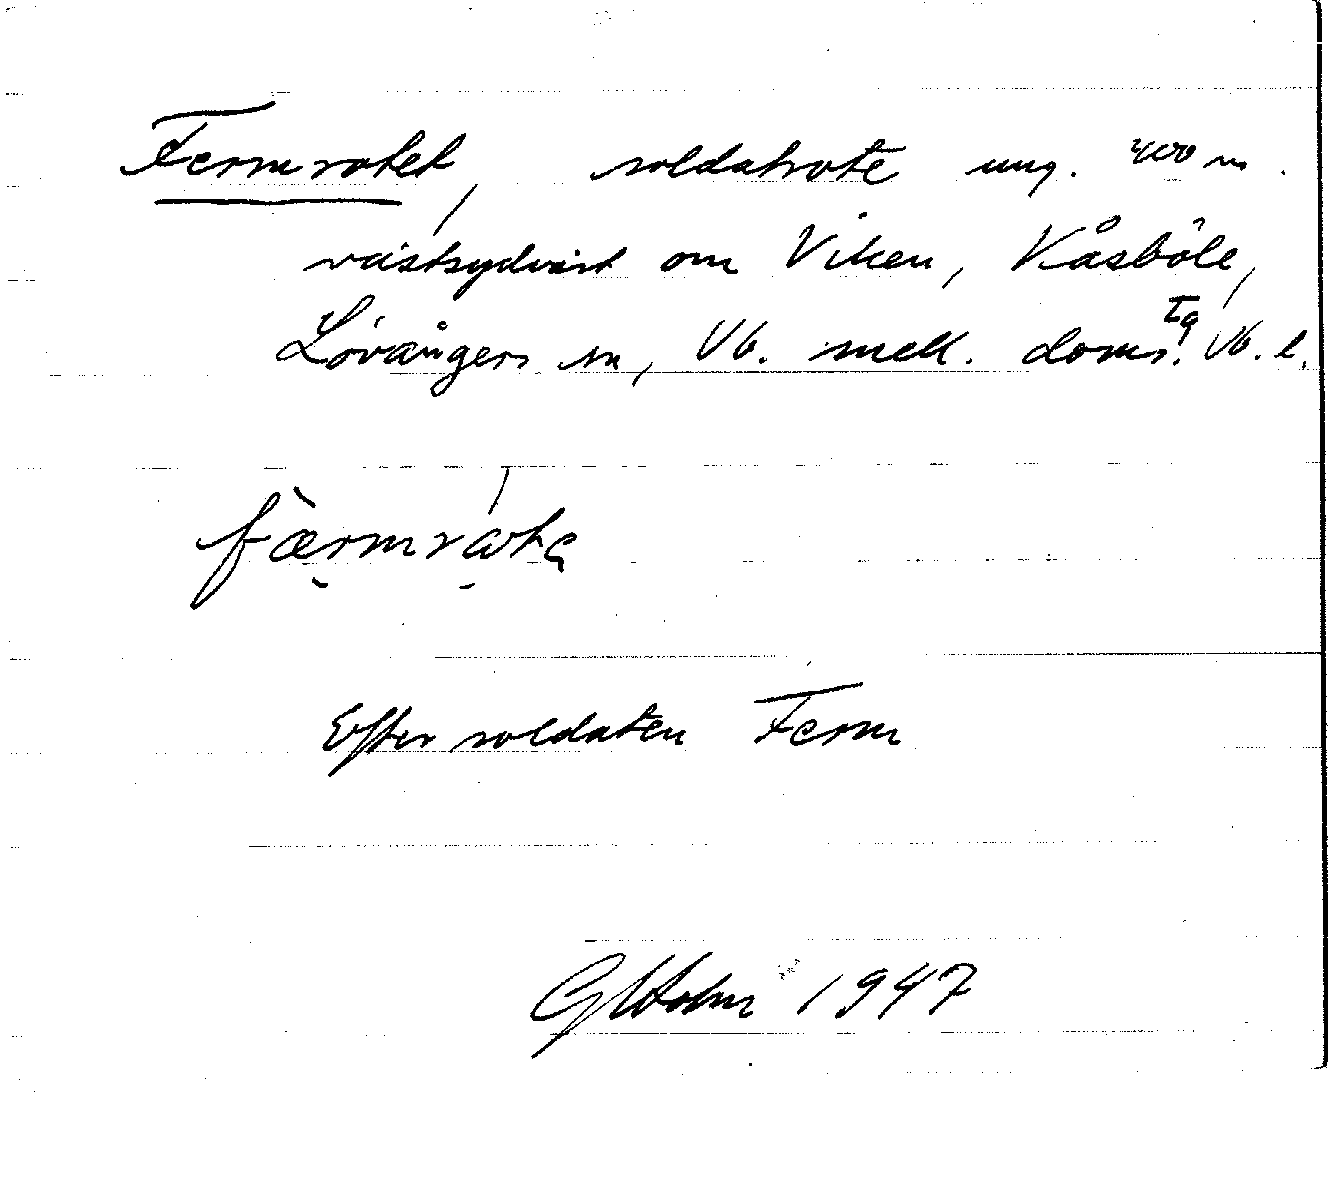 Fermrotet, soldatrote ung. 400 m.
västsydväst om Viken, Kåsböle,
Lövångers sn, Vb. mell. doms. tg Vb. l.
færmråta
Efter soldaten Ferm
G Holm 1947